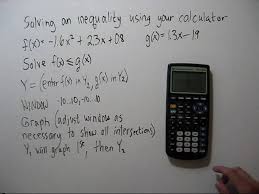 Solving an inequality using your calculator
f(x)= -1.6x² + 2.3x + 0.8 g(x)= 1.3x - 1.9
Solve f(x) ≤ g(x)
Y= (enter f(x) in Y₁, g(x) in Y₂)
WINDOW -10..10, -10..10
Graph (adjust window as
necessary to show all intersections)
Y₁ will graph 1st, then Y₂